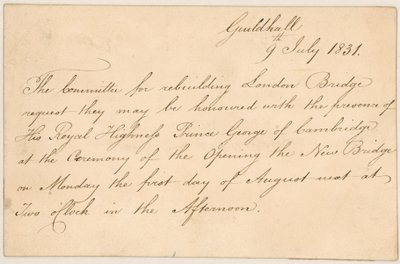 Guildhall
9th July 1831.
The Committee for rebuilding London Bridge
request they may be honoured with the presence of
His Royal Highness Prince George of Cambridge
at the Ceremony of the Opening the New Bridge
on Monday the first day of August next at
Two o'Clock in the Afternoon.